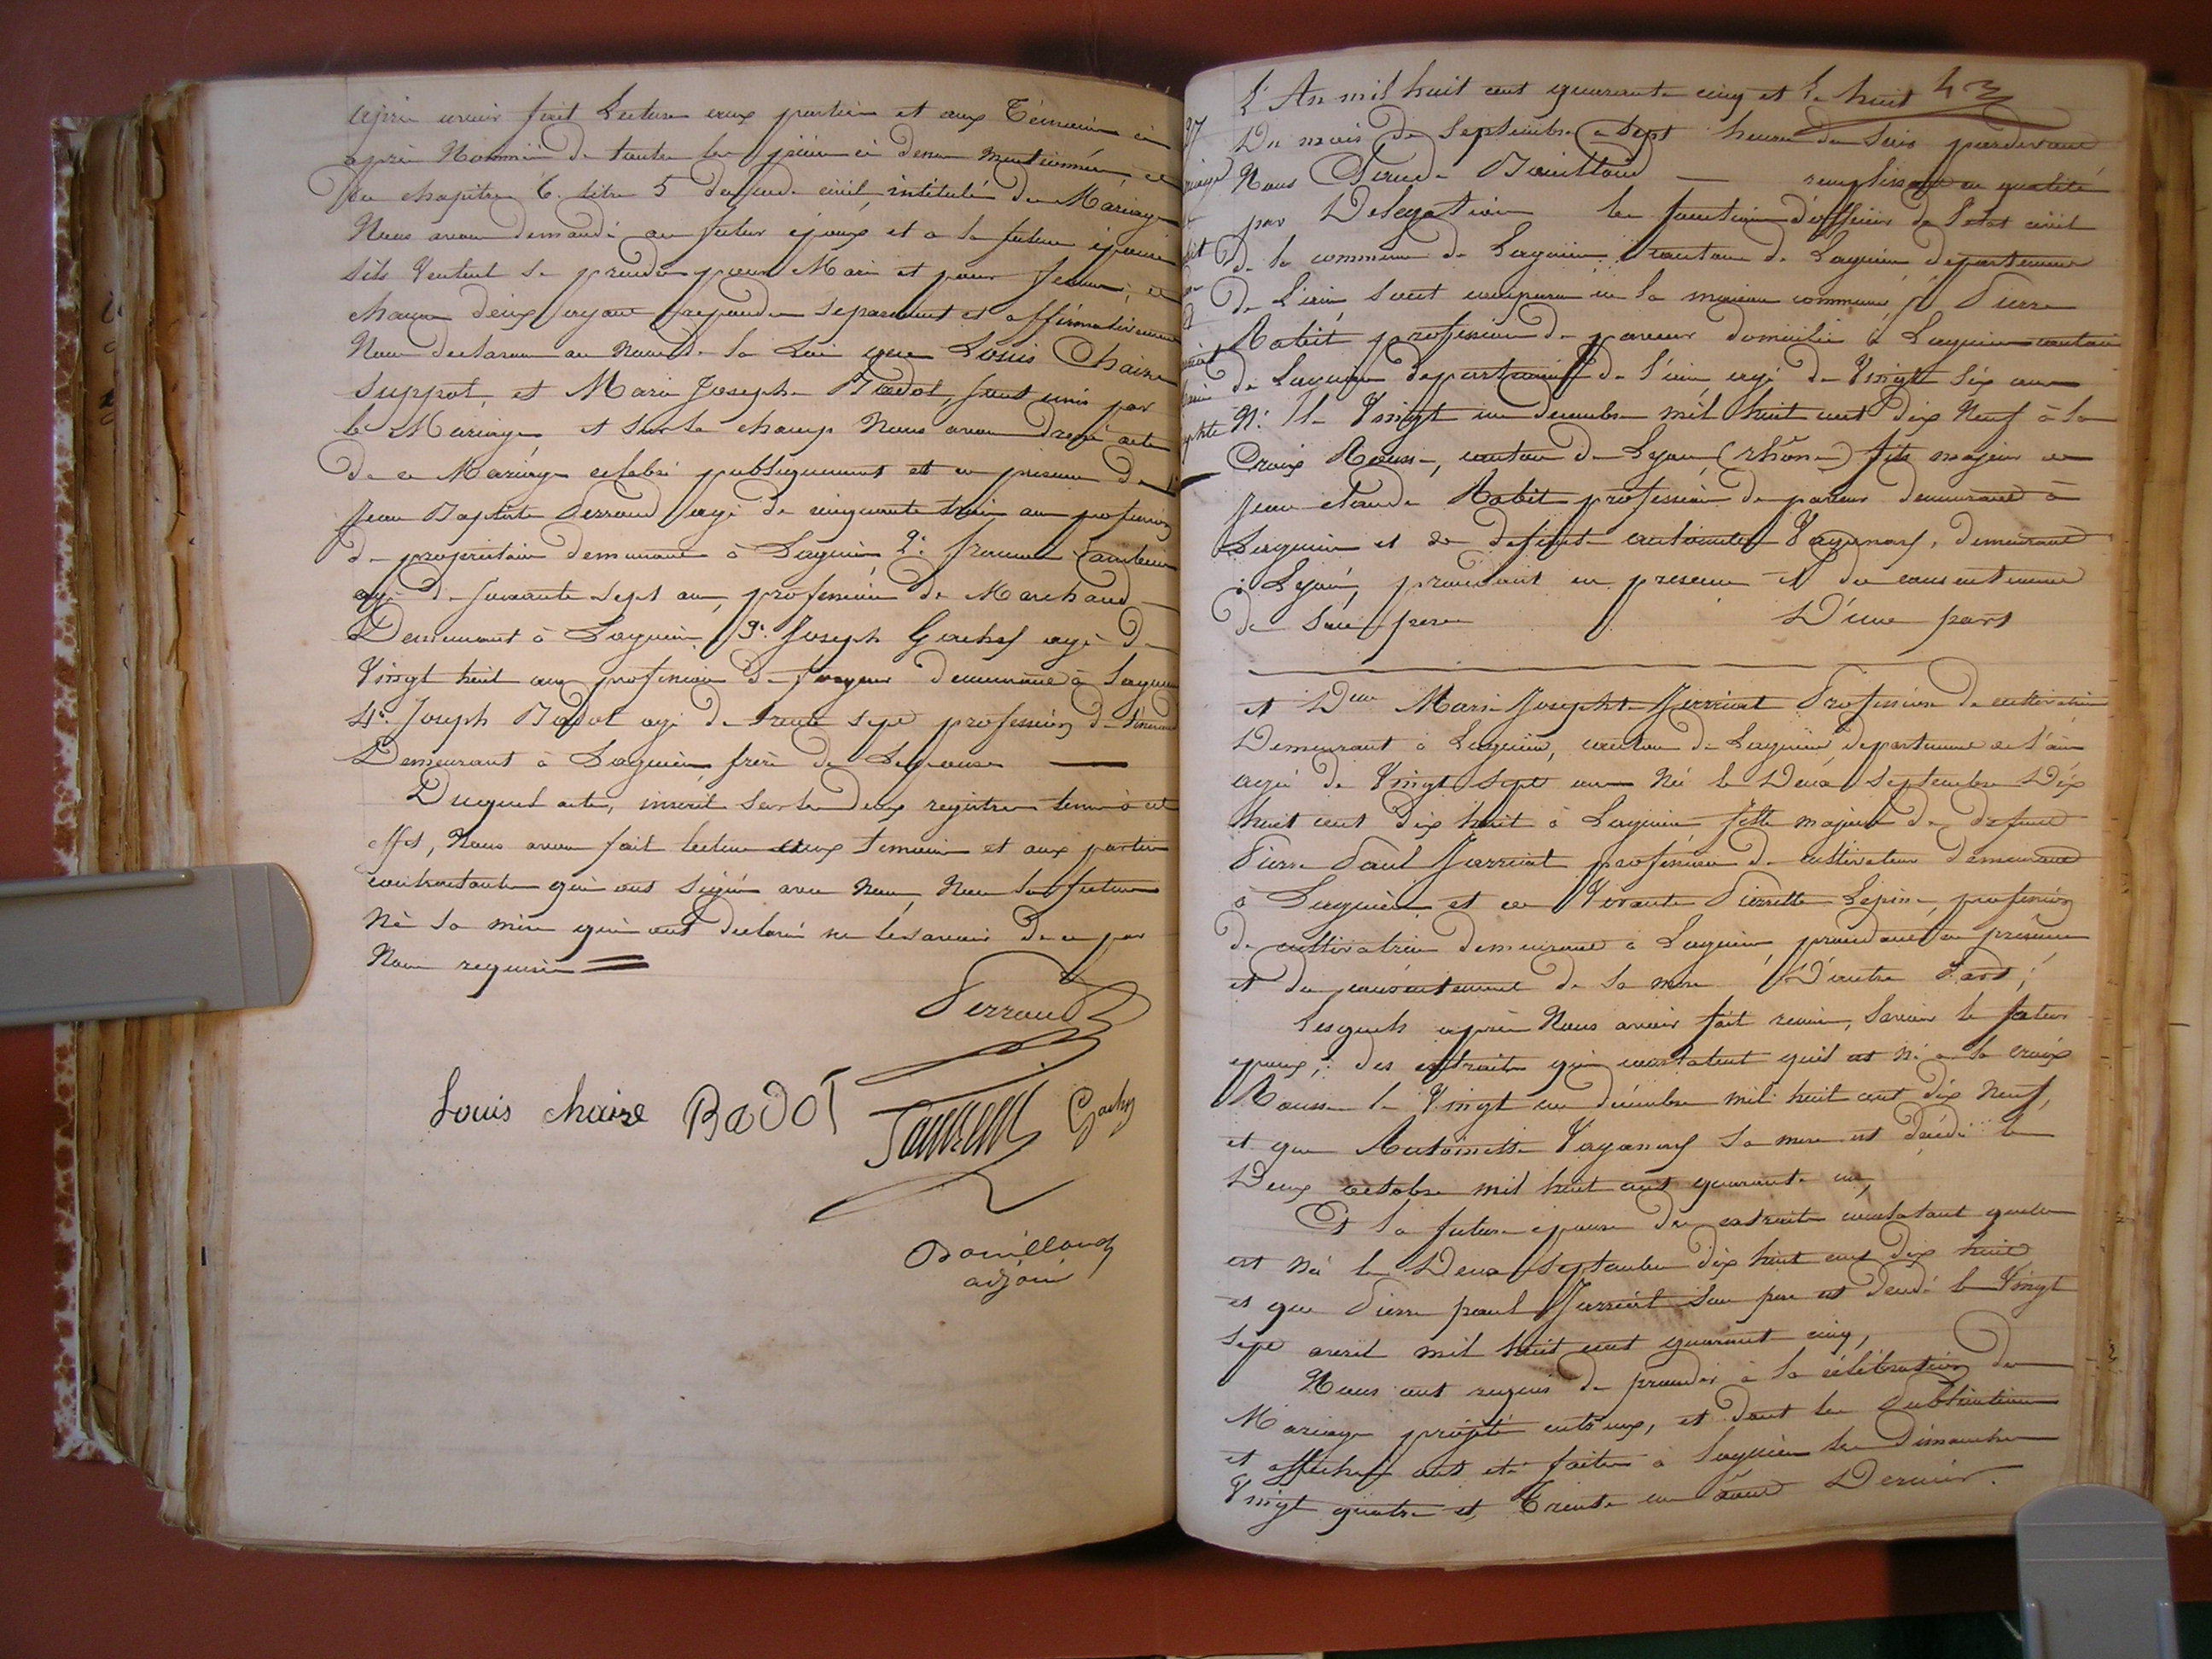 après avoir fait Lecture aux parties et aux Témoins ci
après Nommés de toutes les pièces ci dessus mentionnées, et
du chapitre 6. titre 5 du code civil, intitulé du Mariage
Nous avons demandé au futur époux et a la future épouse
s'ils Veulent se prendre pour Mari et pour femme, et
chacun deux ayant repondu separement et affirmativement
Nous declarons au Nom de la Loi que Louis Chaize
Suppot, et Marie Josephe Badot, sont unis par
le Mariage, et sur le champ Nous avons dressé acte
de ce Mariage celebré publiquement et en presence de
Jean Baptiste Perraud agé de cinquante trois ans profession
de propriétaire demeurant à Lagnieu 2°
agé de soixante sept ans, profession de Marchand
Demeurant à Lagnieu, 3°. Joseph Gachy agé de
Vingt huit ans profession de demeurant à Lagnieu
4°. Joseph Badot agé de trente sept profession de
Demeurant à Lagnieu, frère de Lepouse
Duquel acte, inscrit sur les deux registres tenus à cet
effet, Nous avons fait lecture aux temoins et aux parties
contractantes qui ont signé avec Nous, Non la future
Ni sa mère qui ont declaré ne le savoir de ce par
Nous requises
Perraud
Louis chaize BADOT Gachy
Bouilloud
adjoint
L'An mil huit cent quarante cinq et le huit 43
Du mois de Septembre a sept heures du Soir pardevant
Nous Claude Bouilloud remplissant en qualité
par Delegation les fonctions d'officier de l'etat civil
de la commune de Lagnieu, canton de Lagnieu departement
de L'ain, sont comparus en la maison commune, Sr Pierre
Rabit profession de paveur domicilié à Lagnieu canton
de Lagnieu departement de l'ain agé de Vingt Six ans
Né le Vingt un decembre mil huit cent dix Neuf à la
Croix Rousse, canton de Lyon (rhône) fils majeur de
Jean claude Rabit profession de paveur demeurant à
Lagnieu et de defunte antoinette Vaganay, demeurant
à Lyon, procedant en presence et du consentement
de Son pere D'une part
et Dlle Marie Josephte Jarriat Profession de cultivatrice
Demeurant à Lagnieu, canton de Lagnieu departement de l'ain
agée de Vingt Sept ans Née le Deux Septembre Dix
huit cent dix huit à Lagnieu, fille majeure de defunt
Pierre Paul Jarriat profession de cultivateur demeurant
à Lagnieu, et de Vivante Pierrette Lepine, profession
de cultivatrice demeurant à Lagnieu, procedant en presence
et du consentement de sa mere D'autre Part;
Lesquels après Nous avoir fait remise, Savoir le futur
epoux, des extraits qui constatent quil est né a la croix
Rousse le Vingt un décembre mil huit cent dix Neuf,
et que Antoinette Vaganay sa mere est décédé le
Deux octobre mil huit cent quarante un,
Et la future epouse des extraits constatant quelle
est née le Deux Septembre dix huit cent dix huit
et que Pierre paul Jarriat son pere est decedé le Vingt
sept avril mil huit cent quarante cinq,
Nous ont requis de proceder à la célébration du
Mariage projeté entr'eux, et dont les Publications
et affiches ont été faites à Lagnieu les dimanches
Vingt quatre et Trente un aout Dernier.